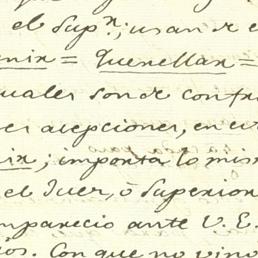 el Sup.ʳ; usan de e
enix = Querellar =
uales son de contra
es acepciones, en e
ix; importa lo mis
el Juez, ó Superior
mparecio ante V. E.
ós. Con que no vino